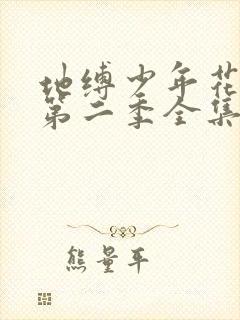 地缚少年花
第二季全集
熊量平